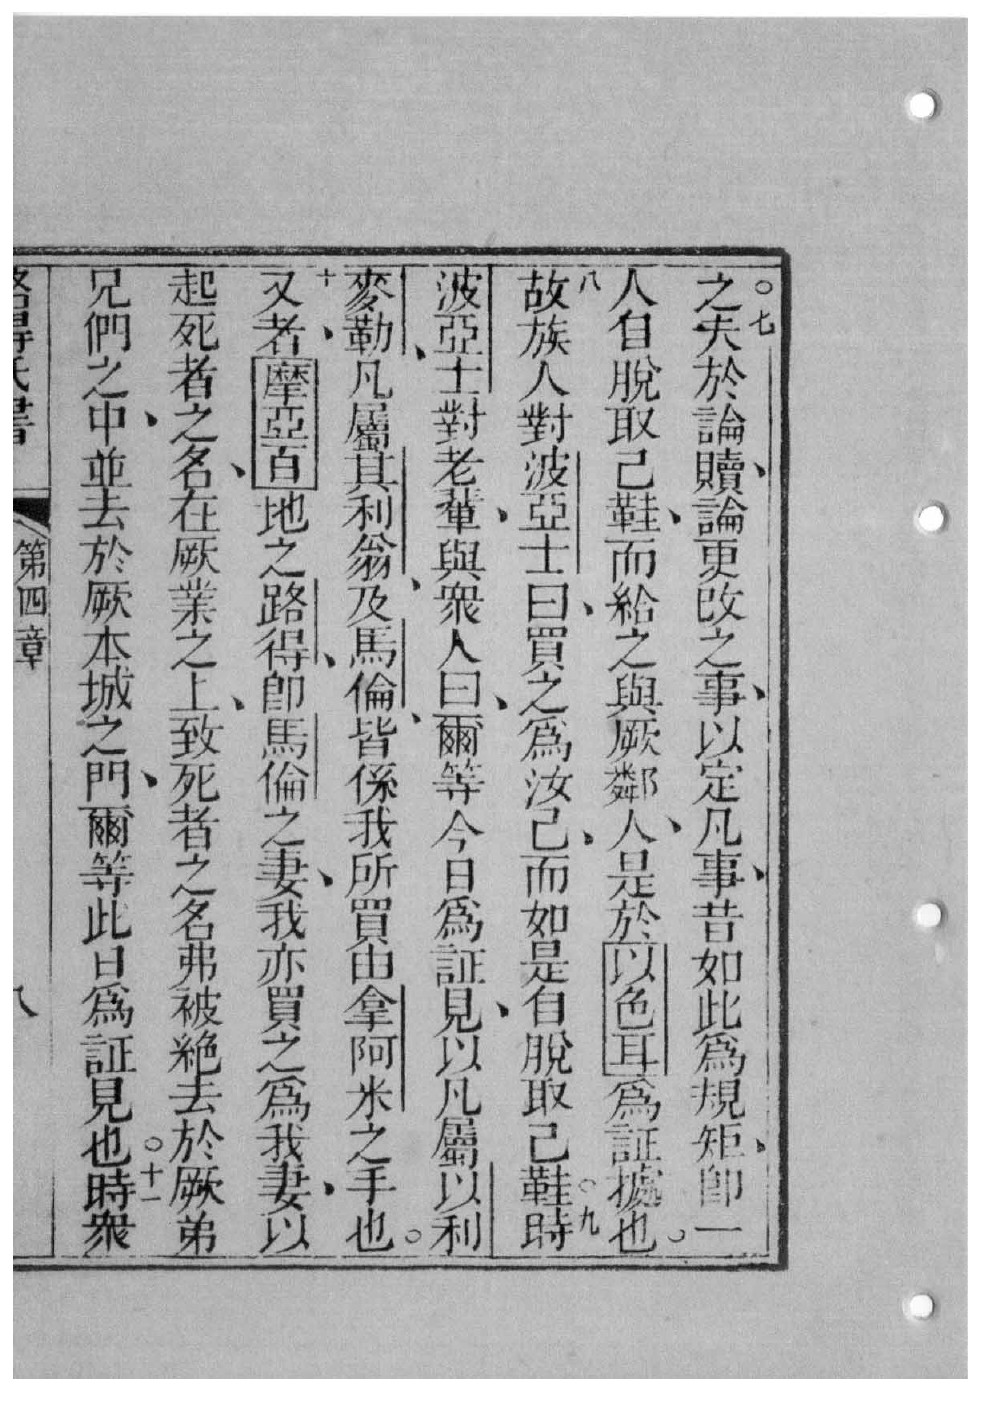 之夫於論贖論更改之事以定凡事昔如此爲規矩即一
〇七
人自脫取己鞋而給之與厥鄰人是於以色耳爲証據也
八
故族人對波亞士曰買之爲汝己而如是自脫取己鞋時
〇九
波亞士對老輩與衆人曰爾等今日爲証見以凡屬以利
麥勒凡屬其利翁及馬倫皆係我所買由拿阿米之手也
十
又者摩亞百地之路得即馬倫之妻我亦買之爲我妻以
起死者之名在厥業之上致死者之名弗被絕去於厥弟
兄們之中並去於厥本城之門爾等此日爲証見也時衆
〇十一
第四章
八